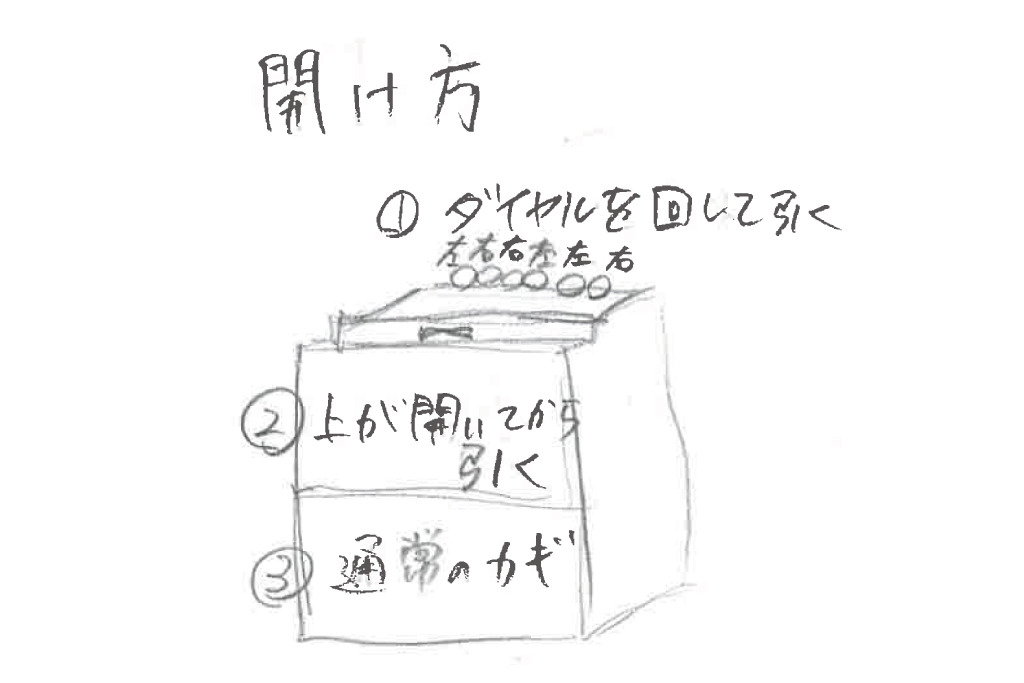 開け方
① ダイヤルを回して引く
左右右左左右
② 上が開いてから
引く
③ 通常のカギ